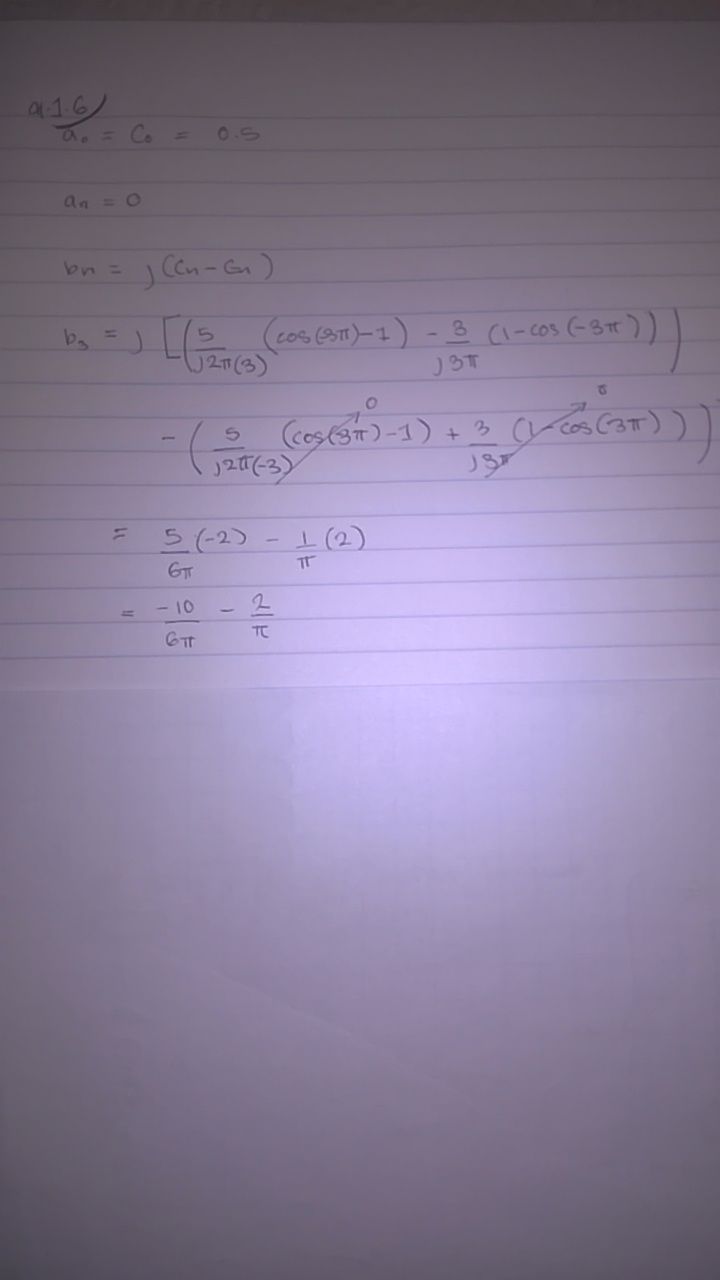 Q1.1.6)
a₀ = C₀ = 0.5
aₙ = 0
bₙ = j(Cₙ - C₋ₙ)
b₃ = j[(5/j2π(3) (cos(3π)-1) - 3/j3π (1-cos(-3π)))
- (5/j2π(-3) (cos(3π)-1) + 3/j3π (1-cos(3π)))] 0 0
= 5/6π (-2) - 1/π (2)
= -10/6π - 2/π